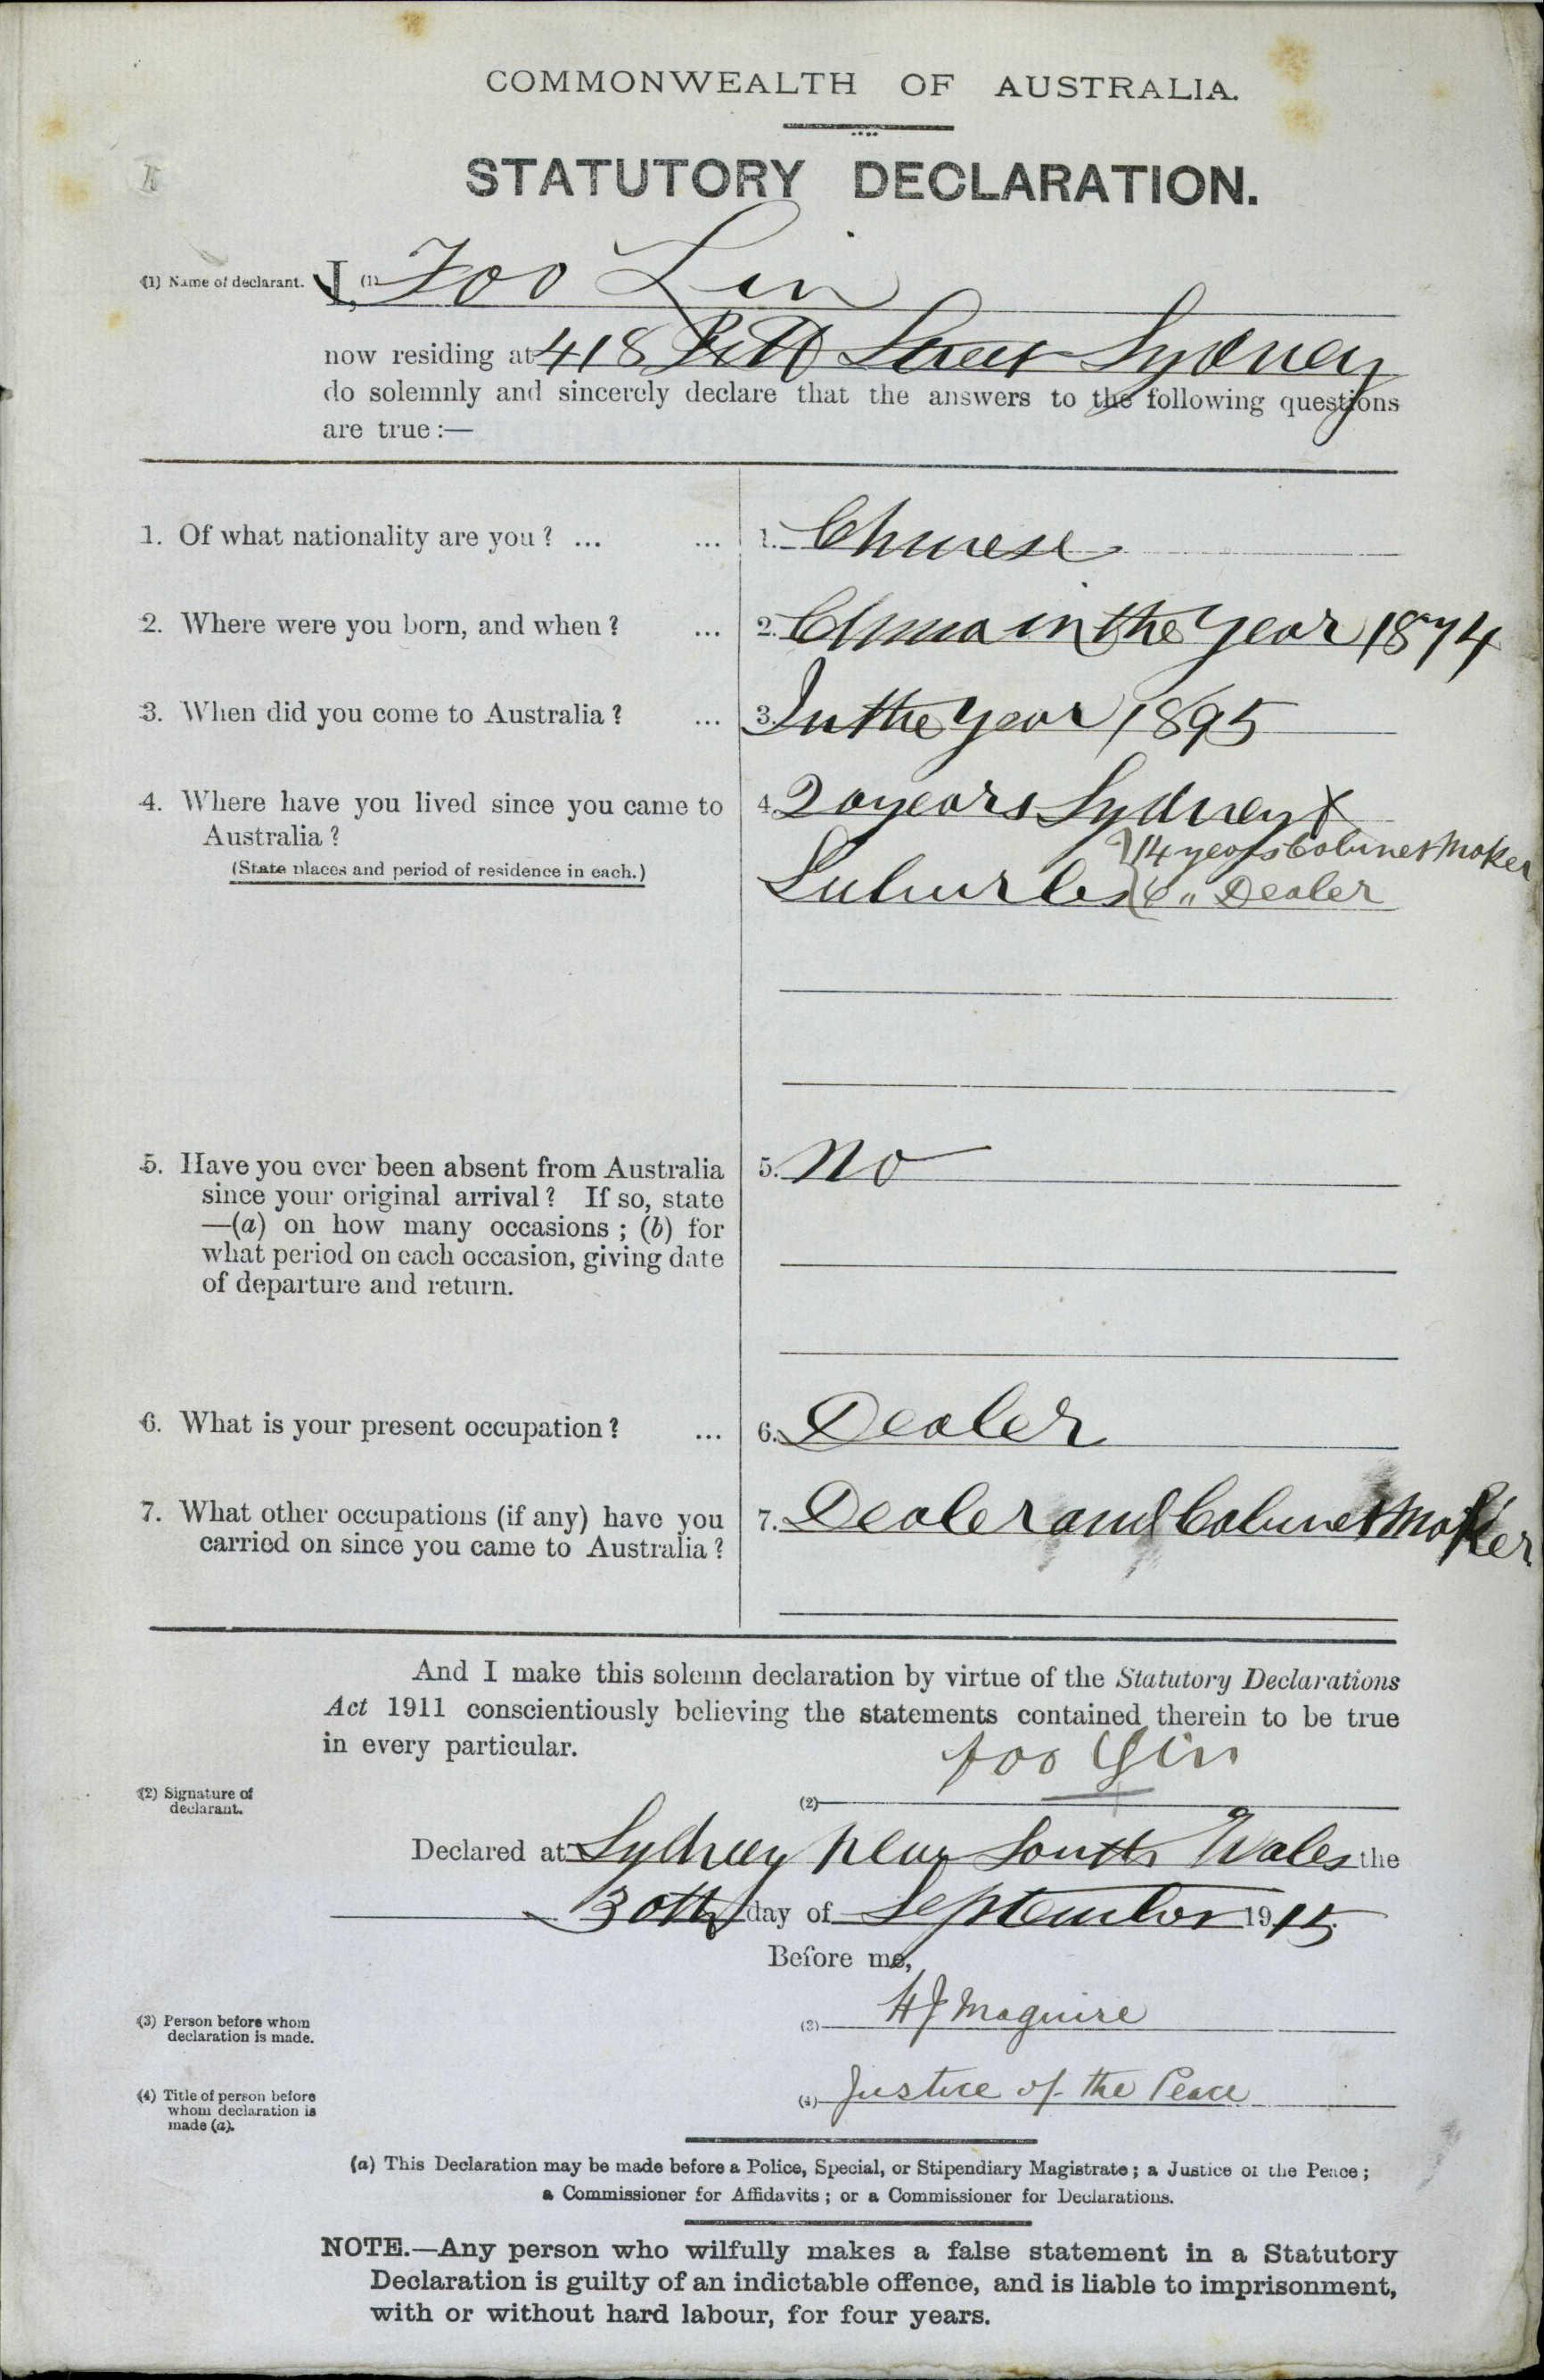 COMMONWEALTH OF AUSTRALIA.
STATUTORY DECLARATION.
(1) Name of declarant. I, (1) Foo Lin
now residing at 418 Pitt Street Sydney
do solemnly and sincerely declare that the answers to the following questions
are true:—
1. Of what nationality are you? ... ... 1. Chinese
2. Where were you born, and when? ... 2. China in the year 1874
3. When did you come to Australia? ... 3. In the year 1895
4. Where have you lived since you came to 4. 20 years Sydney &
Australia? 14 years Cabinet Maker
(State places and period of residence in each.) Suburbs 6 " Dealer
5. Have you ever been absent from Australia 5. No
since your original arrival? If so, state
—(a) on how many occasions; (b) for
what period on each occasion, giving date
of departure and return.
6. What is your present occupation? ... 6. Dealer
7. What other occupations (if any) have you 7. Dealer and Cabinet Maker
carried on since you came to Australia?
And I make this solemn declaration by virtue of the Statutory Declarations
Act 1911 conscientiously believing the statements contained therein to be true
in every particular.
(2) Signature of
declarant.
(2) Foo Gin
Declared at Sydney New South Wales the
30th day of September 1915
Before me,
(3) Person before whom
declaration is made.
(3) HJ Maguire
(4) Title of person before
whom declaration is
made (a).
(4) Justice of the Peace
(a) This Declaration may be made before a Police, Special, or Stipendiary Magistrate; a Justice of the Peace;
a Commissioner for Affidavits; or a Commissioner for Declarations.
NOTE.—Any person who wilfully makes a false statement in a Statutory
Declaration is guilty of an indictable offence, and is liable to imprisonment,
with or without hard labour, for four years.